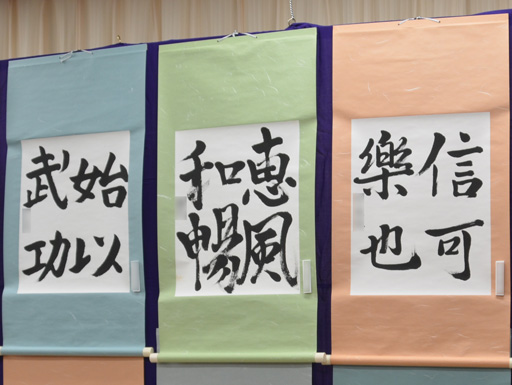 信可
樂也
恵風
和暢
始以
武功